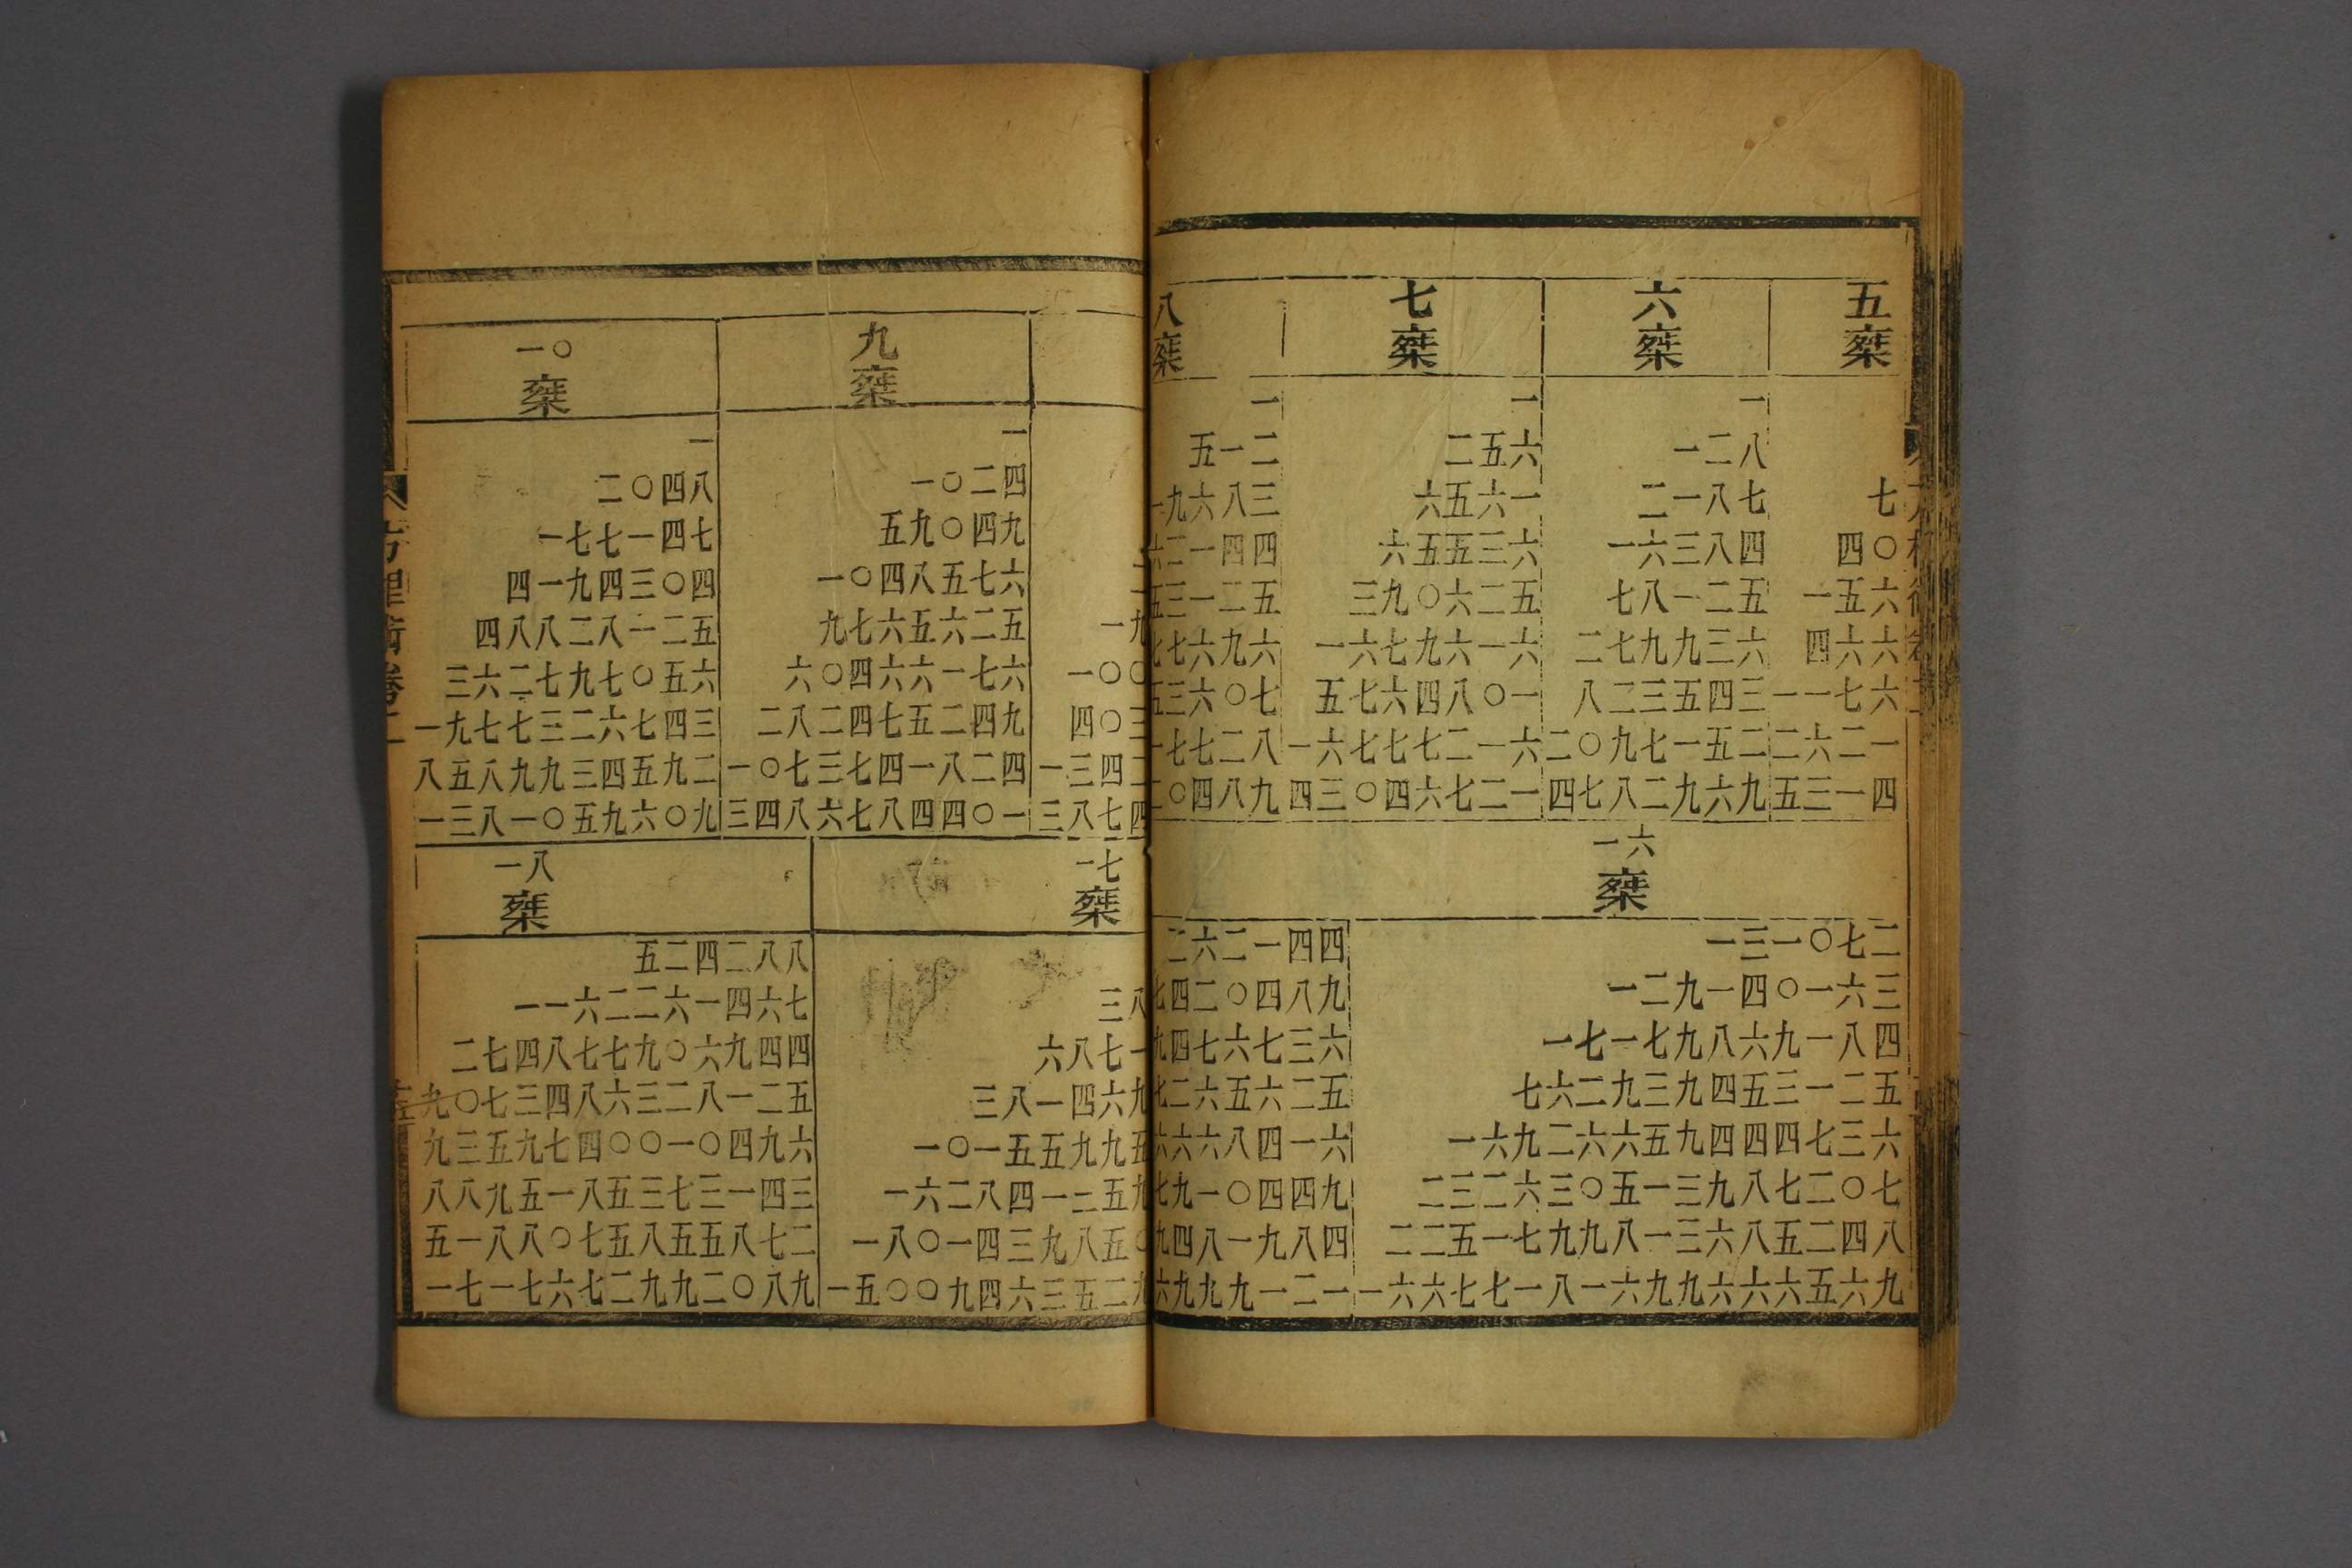 五椉
七
四〇
一五六
四六六
一一七六
二六二一
五三一四
六椉
一
一二八
二一八七
一六三八四
七八一二五
二七九九三六
八二三五四三
二〇九七一五二
四七八二九六九
七椉
一
二五六
六五六一
六五五三六
三九〇六二五
一六七九六一六
五七六四八〇一
一六七七七二一六
四三〇四六七二一
八椉
一
五一二
一九六八三
六二一四四
五三一二五
七七六九六
五三六〇七
一七七二八
二〇四八九
一六椉
一三一〇七二
一二九一四〇一六三
一七一七九八六九一八四
七六二九三九四五三一二五
一六九二六六五九四四四七三六
二三二六三〇五一三九八七二〇七
二二五一七九九八一三六八五二四八
一六六七七一八一六九九六六六五六九
二六二一四四
七四二〇四八九
九四七六七三六
七二六五六二五
六六六八四一六
七九一〇四四九
九四八一九八四
六九九九一二一
一九
一〇〇
四〇三
一三四二
三八七四
九椉
一
一〇二四
五九〇四九
一〇四八五七六
九七六五六二五
六〇四六六一七六
二八二四七五二四九
一〇七三七四一八二四
三四八六七八四四〇一
一〇椉
一
二〇四八
一七七一四七
四一九四三〇四
四八八二八一二五
三六二七九七〇五六
一九七七三二六七四三
八五八九九三四五九二
一三八一〇五九六〇九
一七椉
三八
六八七一
三八一四六九
一〇一五五九九五
一六二八四一三五九
一八〇一四三九八五〇
一五〇〇九四六三五二九
一八椉
五二四二八八
一一六二二六一四六七
二七四八七七九〇六九四四
九〇七三四八六三二八一二五
九三五九七四〇〇一〇四九六
八八九五一八五三七三一四三
五一八八〇七五八五五八七二
一七一七六七二九九二〇八九